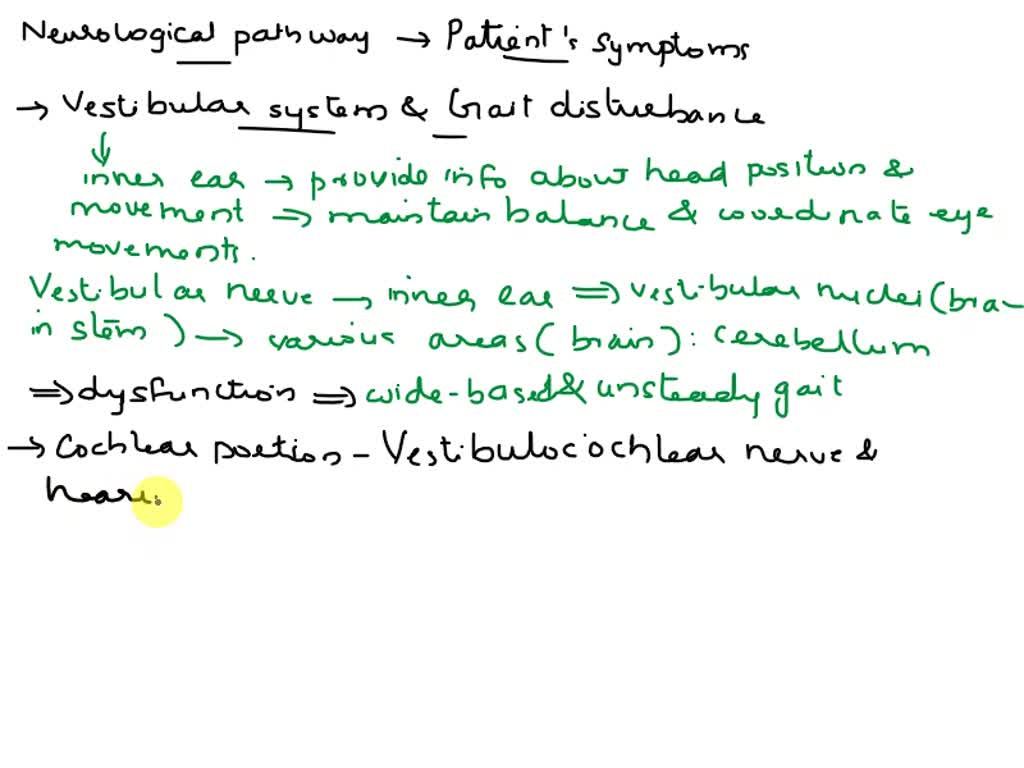 Neurological pathway → Patient's symptoms
→ Vestibular system & Gait disturbance
↓
inner ear → provide info about head position &
movement ⇒ maintain balance & coordinate eye
movements.
Vestibular nerve → inner ear ⇒ vestibular nuclei (bra-
in stem) → various areas (brain): cerebellum
⇒ dysfunction ⇒ wide-based & unsteady gait
→ Cochlear portion - Vestibulocochlear nerve &
heari